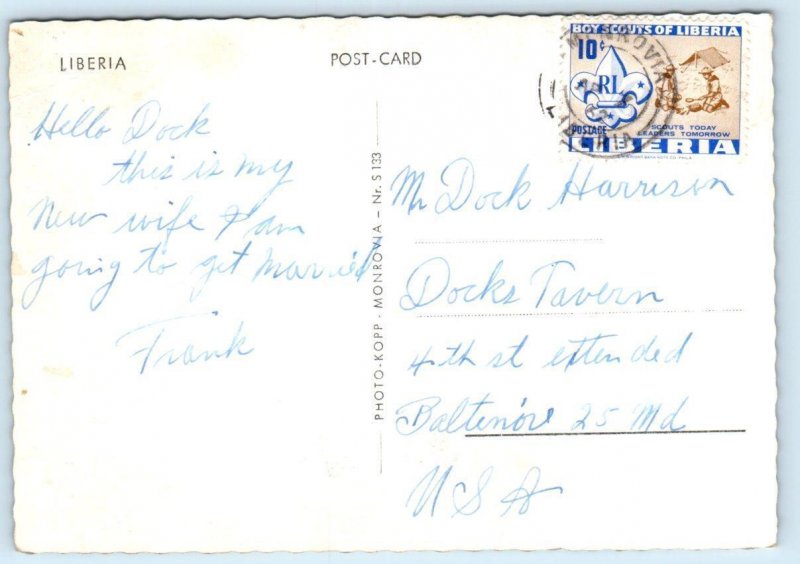 LIBERIA
POST-CARD
Hello Dock
this is my
New wife I am
going to get Married
Frank
PHOTO-KOPP - MONROVIA - Nr. S 133
BOY SCOUTS OF LIBERIA
10c
RL
POSTAGE
SCOUTS TODAY
LEADERS TOMORROW
LIBERIA
MONROVIA
62
Mr Dock Harrison
Docks Tavern
4th st extended
Baltimore 25 Md
USA